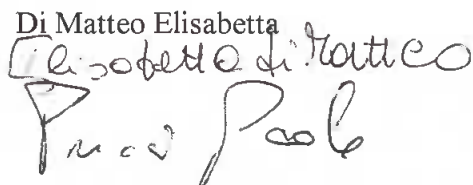 Di Matteo Elisabetta
Elisabetta di Matteo
Paolo